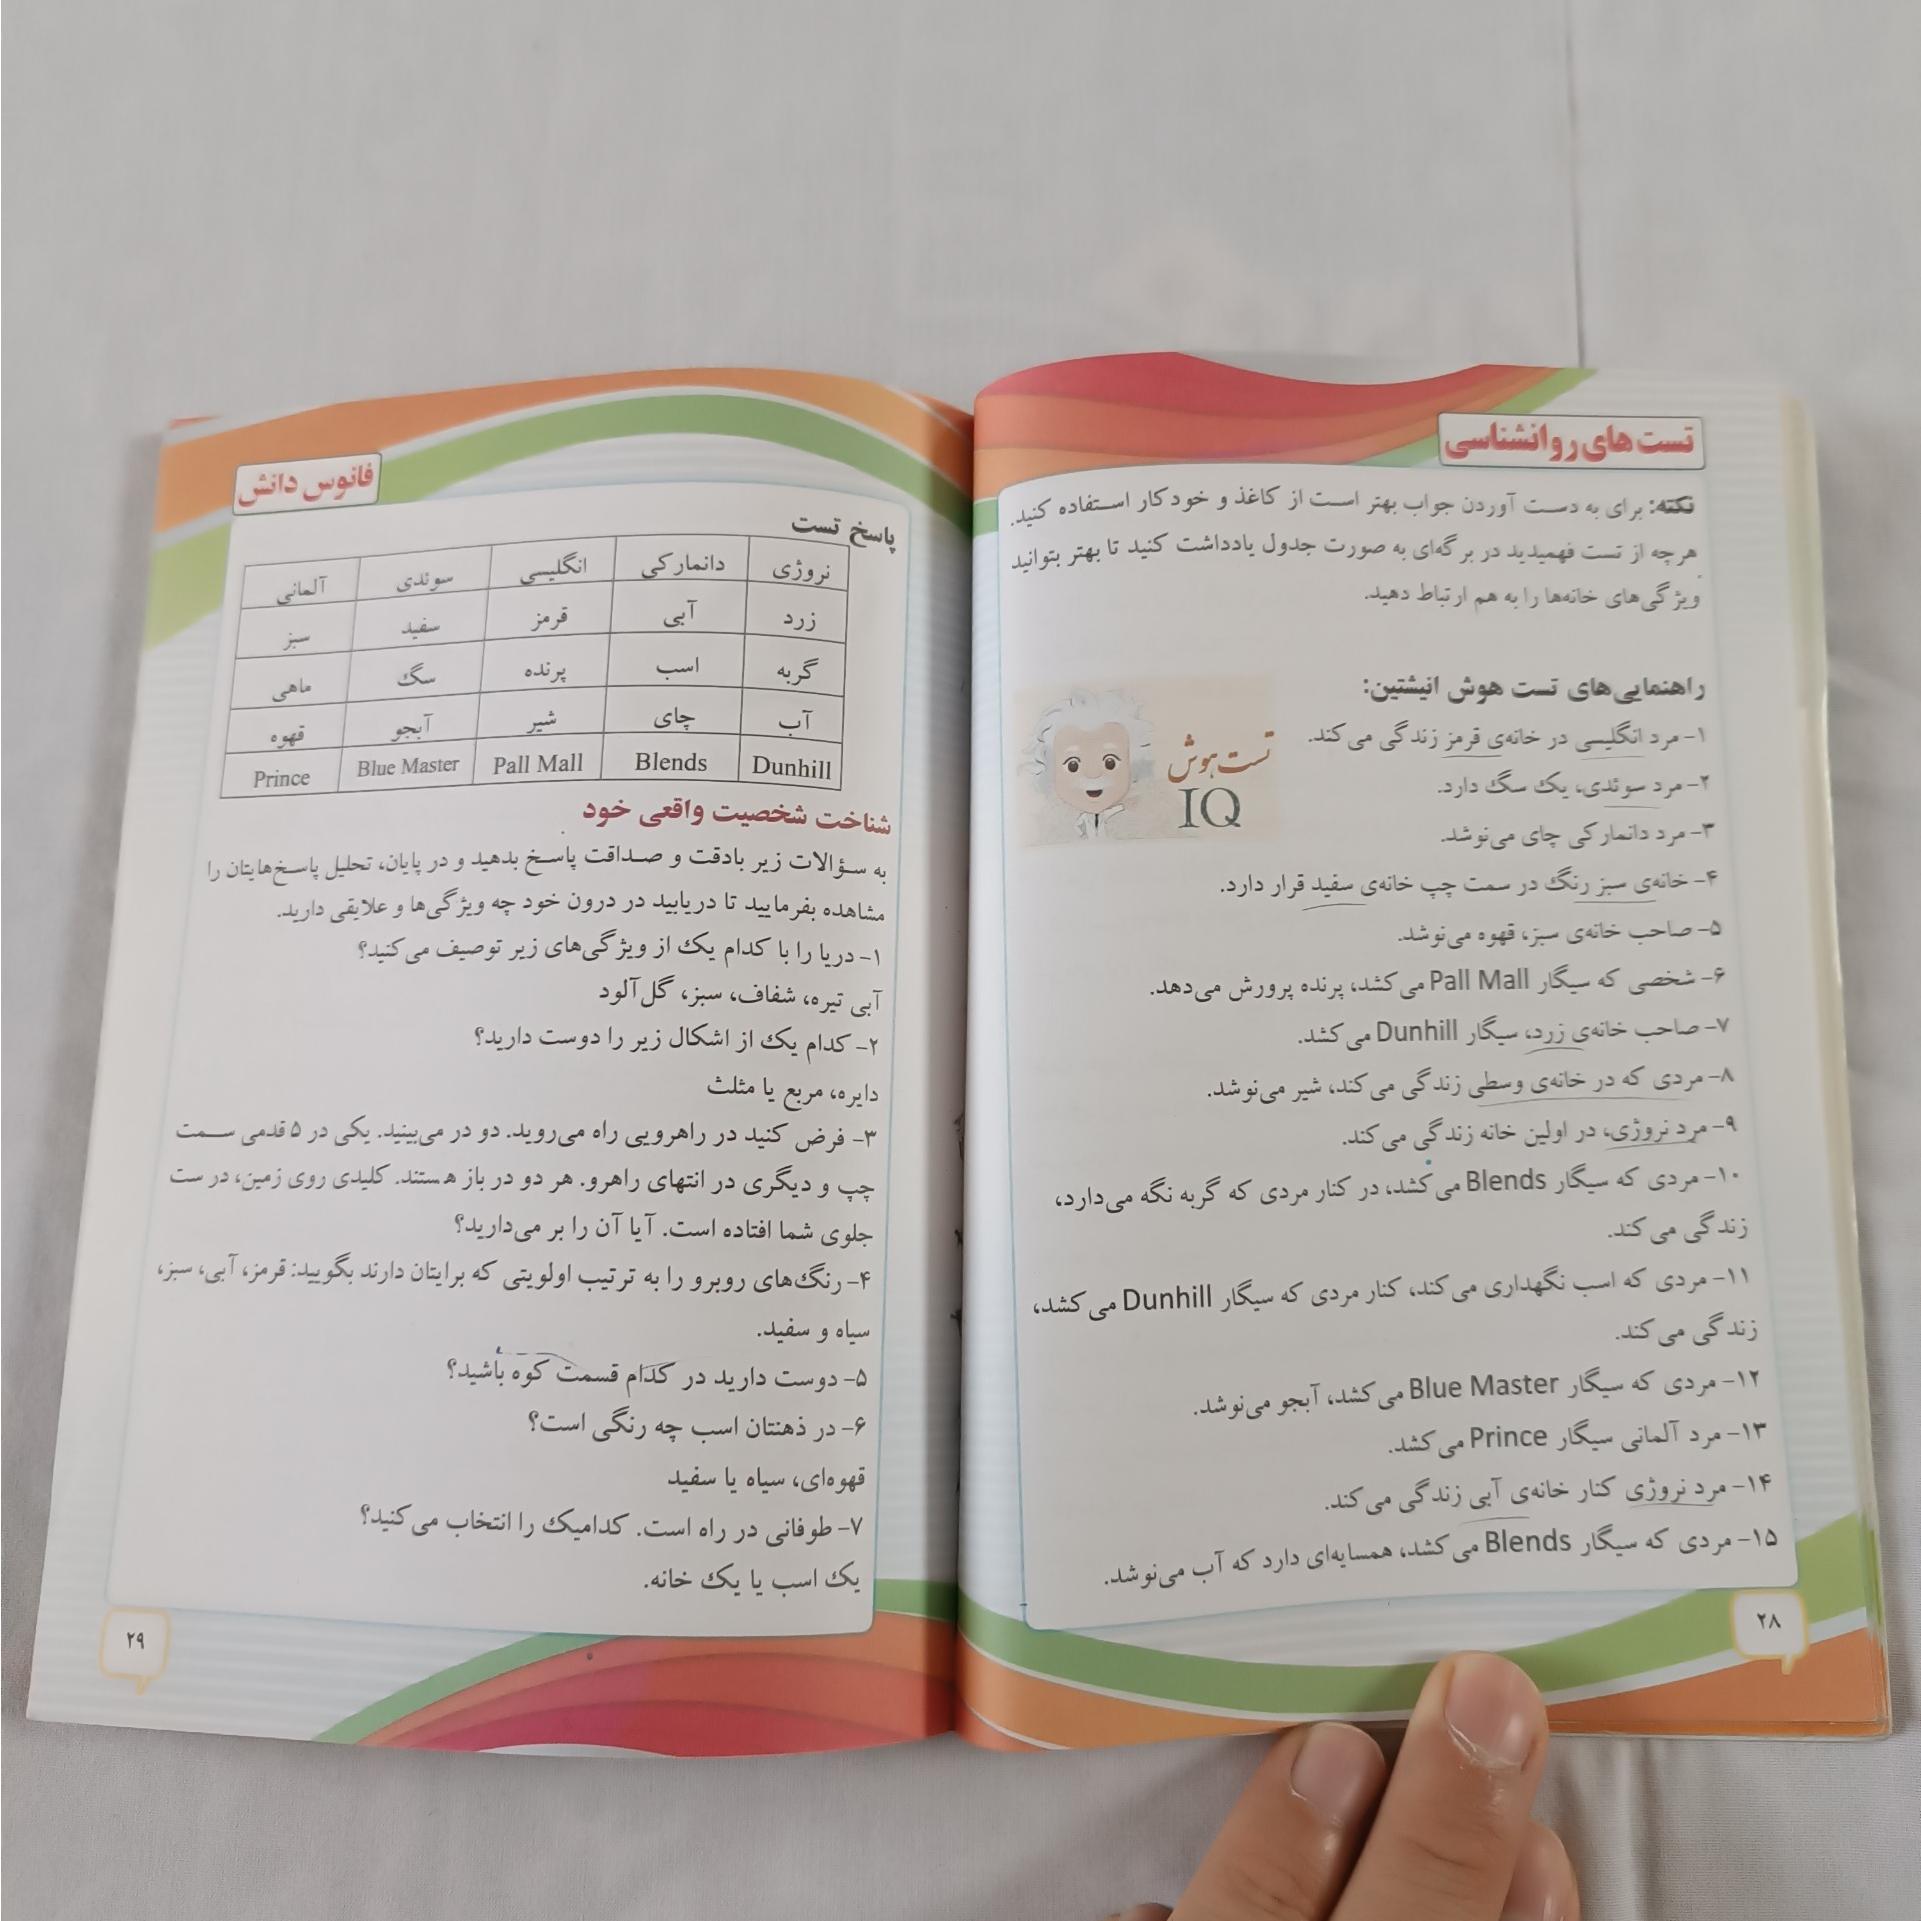 تست های روانشناسی
نکته: برای به دست آوردن جواب بهتر است از کاغذ و خودکار استفاده کنید.
هرچه از تست فهمیدید در برگه‌ای به صورت جدول یادداشت کنید تا بهتر بتوانید
ویژگی‌های خانه‌ها را به هم ارتباط دهید.
راهنمایی‌های تست هوش انیشتین:
۱- مرد انگلیسی در خانه‌ی قرمز زندگی می‌کند.
۲- مرد سوئدی، یک سگ دارد.
۳- مرد دانمارکی چای می‌نوشد.
تست هوش
IQ
۴- خانه‌ی سبز رنگ در سمت چپ خانه‌ی سفید قرار دارد.
۵- صاحب خانه‌ی سبز، قهوه می‌نوشد.
۶- شخصی که سیگار Pall Mall می‌کشد، پرنده پرورش می‌دهد.
۷- صاحب خانه‌ی زرد، سیگار Dunhill می‌کشد.
۸- مردی که در خانه‌ی وسطی زندگی می‌کند، شیر می‌نوشد.
۹- مرد نروژی، در اولین خانه زندگی می‌کند.
۱۰- مردی که سیگار Blends می‌کشد، در کنار مردی که گربه نگه می‌دارد،
زندگی می‌کند.
۱۱- مردی که اسب نگهداری می‌کند، کنار مردی که سیگار Dunhill می‌کشد،
زندگی می‌کند.
۱۲- مردی که سیگار Blue Master می‌کشد، آبجو می‌نوشد.
۱۳- مرد آلمانی سیگار Prince می‌کشد.
۱۴- مرد نروژی کنار خانه‌ی آبی زندگی می‌کند.
۱۵- مردی که سیگار Blends می‌کشد، همسایه‌ای دارد که آب می‌نوشد.
۲۸
فانوس دانش
پاسخ تست
نروژی دانمارکی انگلیسی سوئدی آلمانی
زرد آبی قرمز سفید سبز
گربه اسب پرنده سگ ماهی
آب چای شیر آبجو قهوه
Dunhill Blends Pall Mall Blue Master Prince
شناخت شخصیت واقعی خود
به سؤالات زیر بادقت و صداقت پاسخ بدهید و در پایان، تحلیل پاسخ‌هایتان را
مشاهده بفرمایید تا دریابید در درون خود چه ویژگی‌ها و علایقی دارید.
۱- دریا را با کدام یک از ویژگی‌های زیر توصیف می‌کنید؟
آبی تیره، شفاف، سبز، گل‌آلود
۲- کدام یک از اشکال زیر را دوست دارید؟
دایره، مربع یا مثلث
۳- فرض کنید در راهرویی راه می‌روید. دو در می‌بینید. یکی در ۵ قدمی سمت
چپ و دیگری در انتهای راهرو. هر دو در باز هستند. کلیدی روی زمین، در ست
جلوی شما افتاده است. آیا آن را بر می‌دارید؟
۴- رنگ‌های روبرو را به ترتیب اولویتی که برایتان دارند بگویید: قرمز، آبی، سبز،
سیاه و سفید.
۵- دوست دارید در کدام قسمت کوه باشید؟
۶- در ذهنتان اسب چه رنگی است؟
قهوه‌ای، سیاه یا سفید
۷- طوفانی در راه است. کدامیک را انتخاب می‌کنید؟
یک اسب یا یک خانه.
۲۹